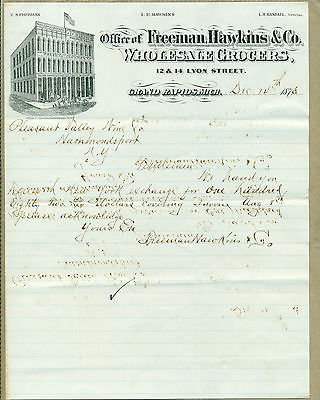 V. S. FREEMAN. L. H. HAWKINS. L. H. RANDALL, SPECIAL.
Office of Freeman, Hawkins & Co.
WHOLESALE GROCERS,
12 & 14 LYON STREET.
GRAND RAPIDS, MICH. Dec 10th 187
Pleasant Valley Wine Co
Hammondsport
N.Y.
Gentlemen
We hand you
herewith New York exchange for One hundred
Eighty two Dollars covering Invoice Aug
Please acknowledge
Yours Etc
Freeman Hawkins & Co